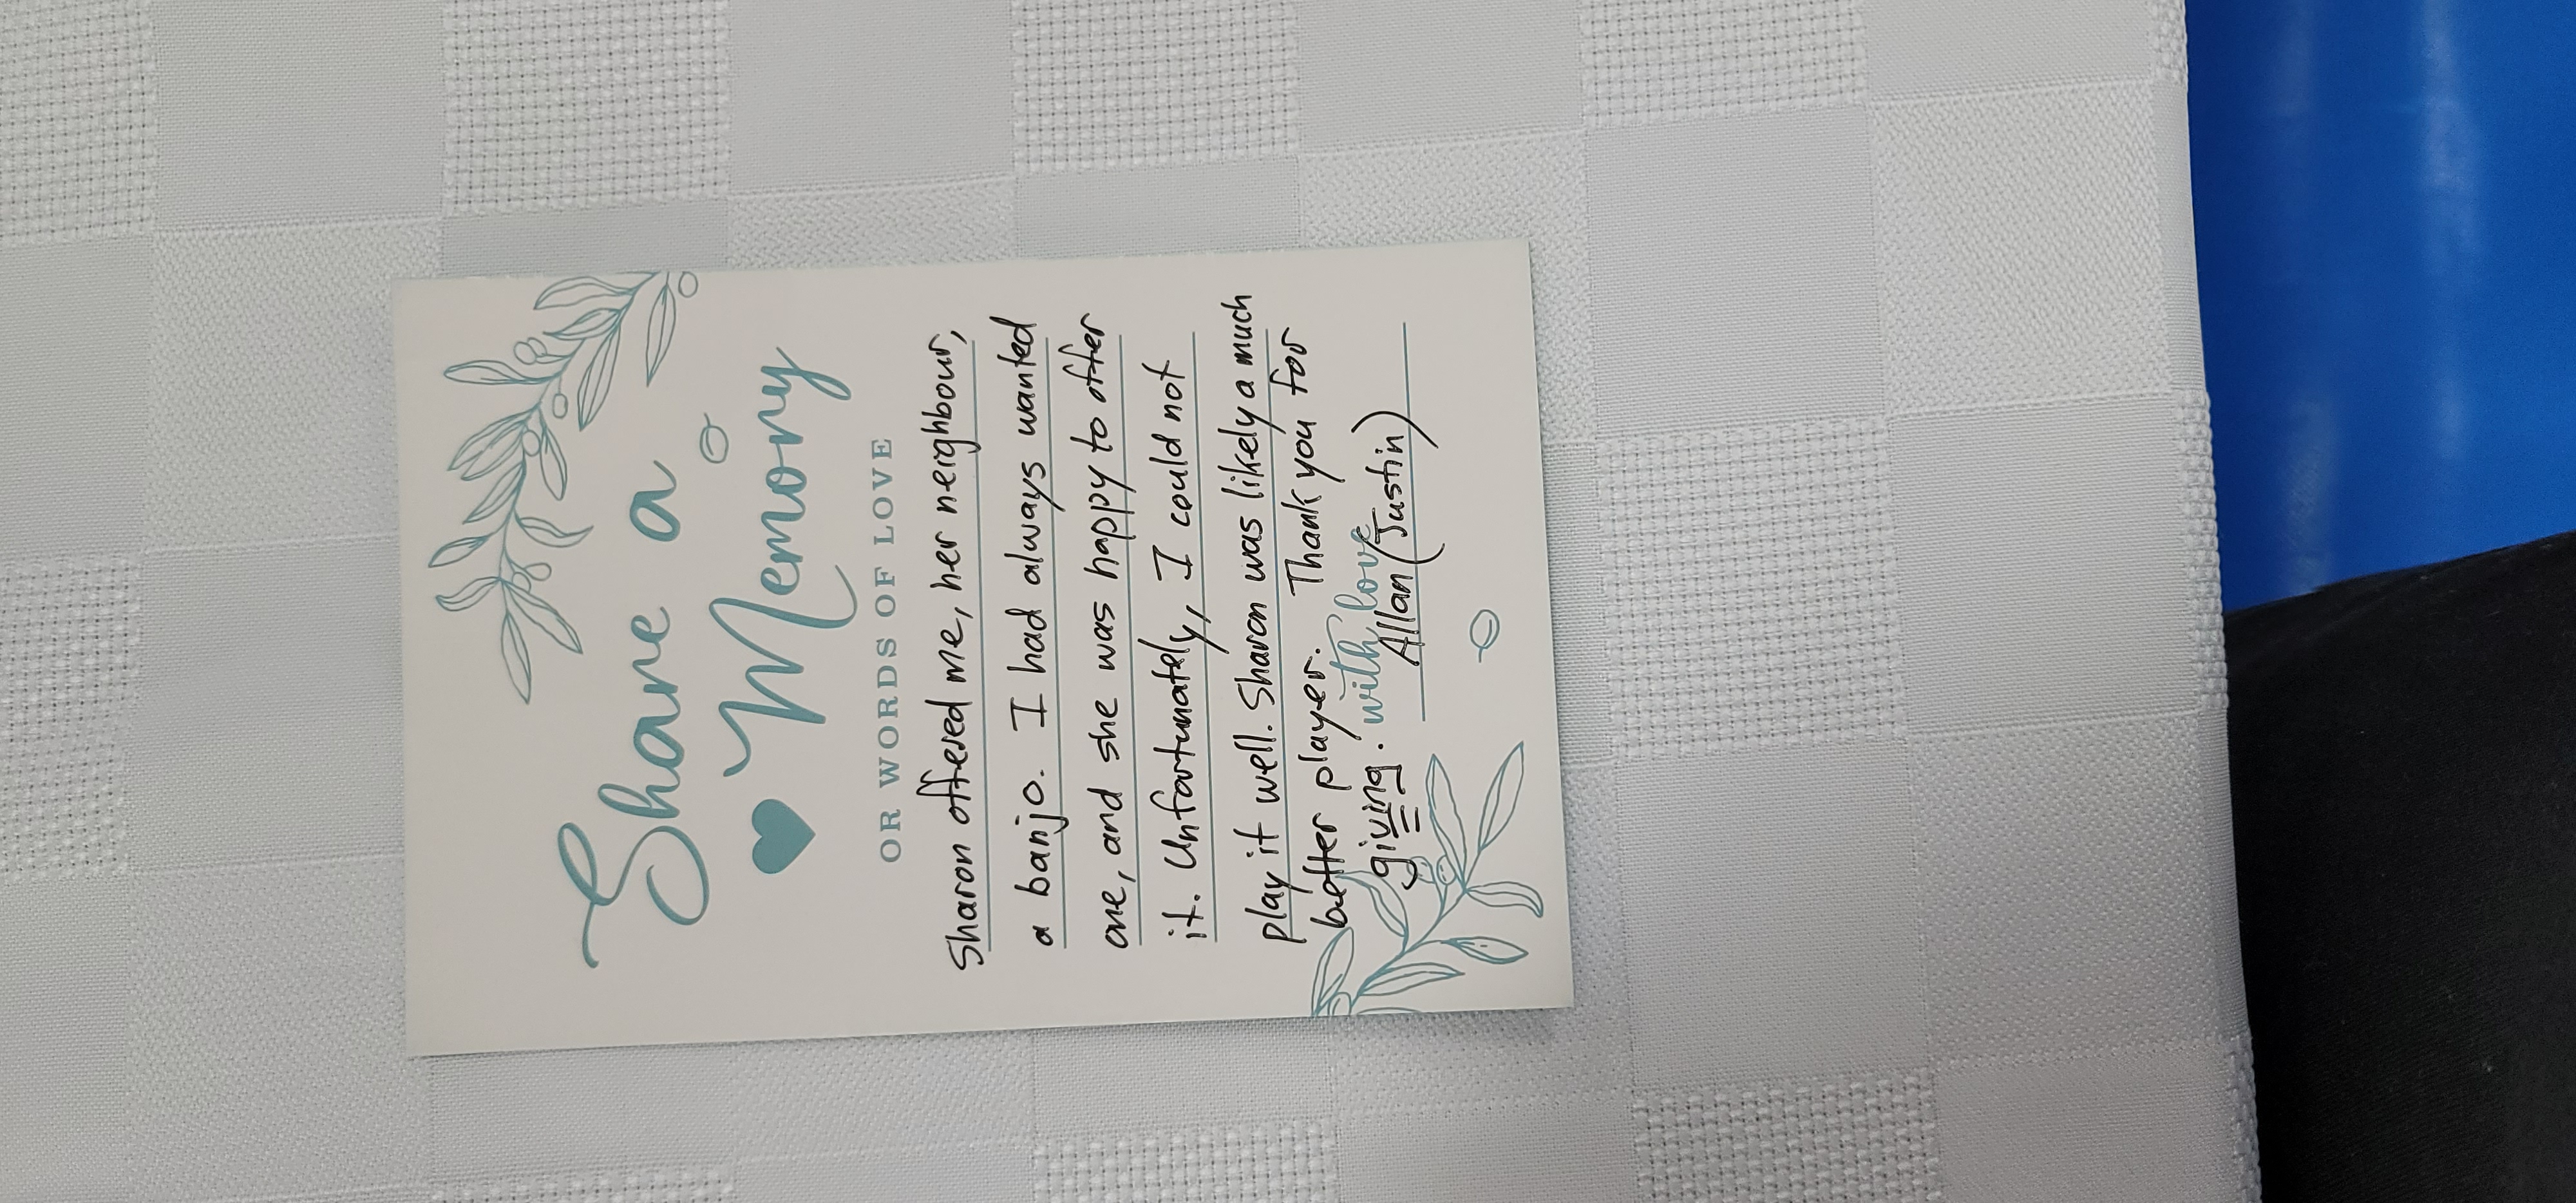 Share a
Memory
OR WORDS OF LOVE
Sharon offered me, her neighbour,
a banjo. I had always wanted
one, and she was happy to offer
it. Unfortunately, I could not
play it well. Sharon was likely a much
better player. Thank you for
giving. with love
Allan (Justin)